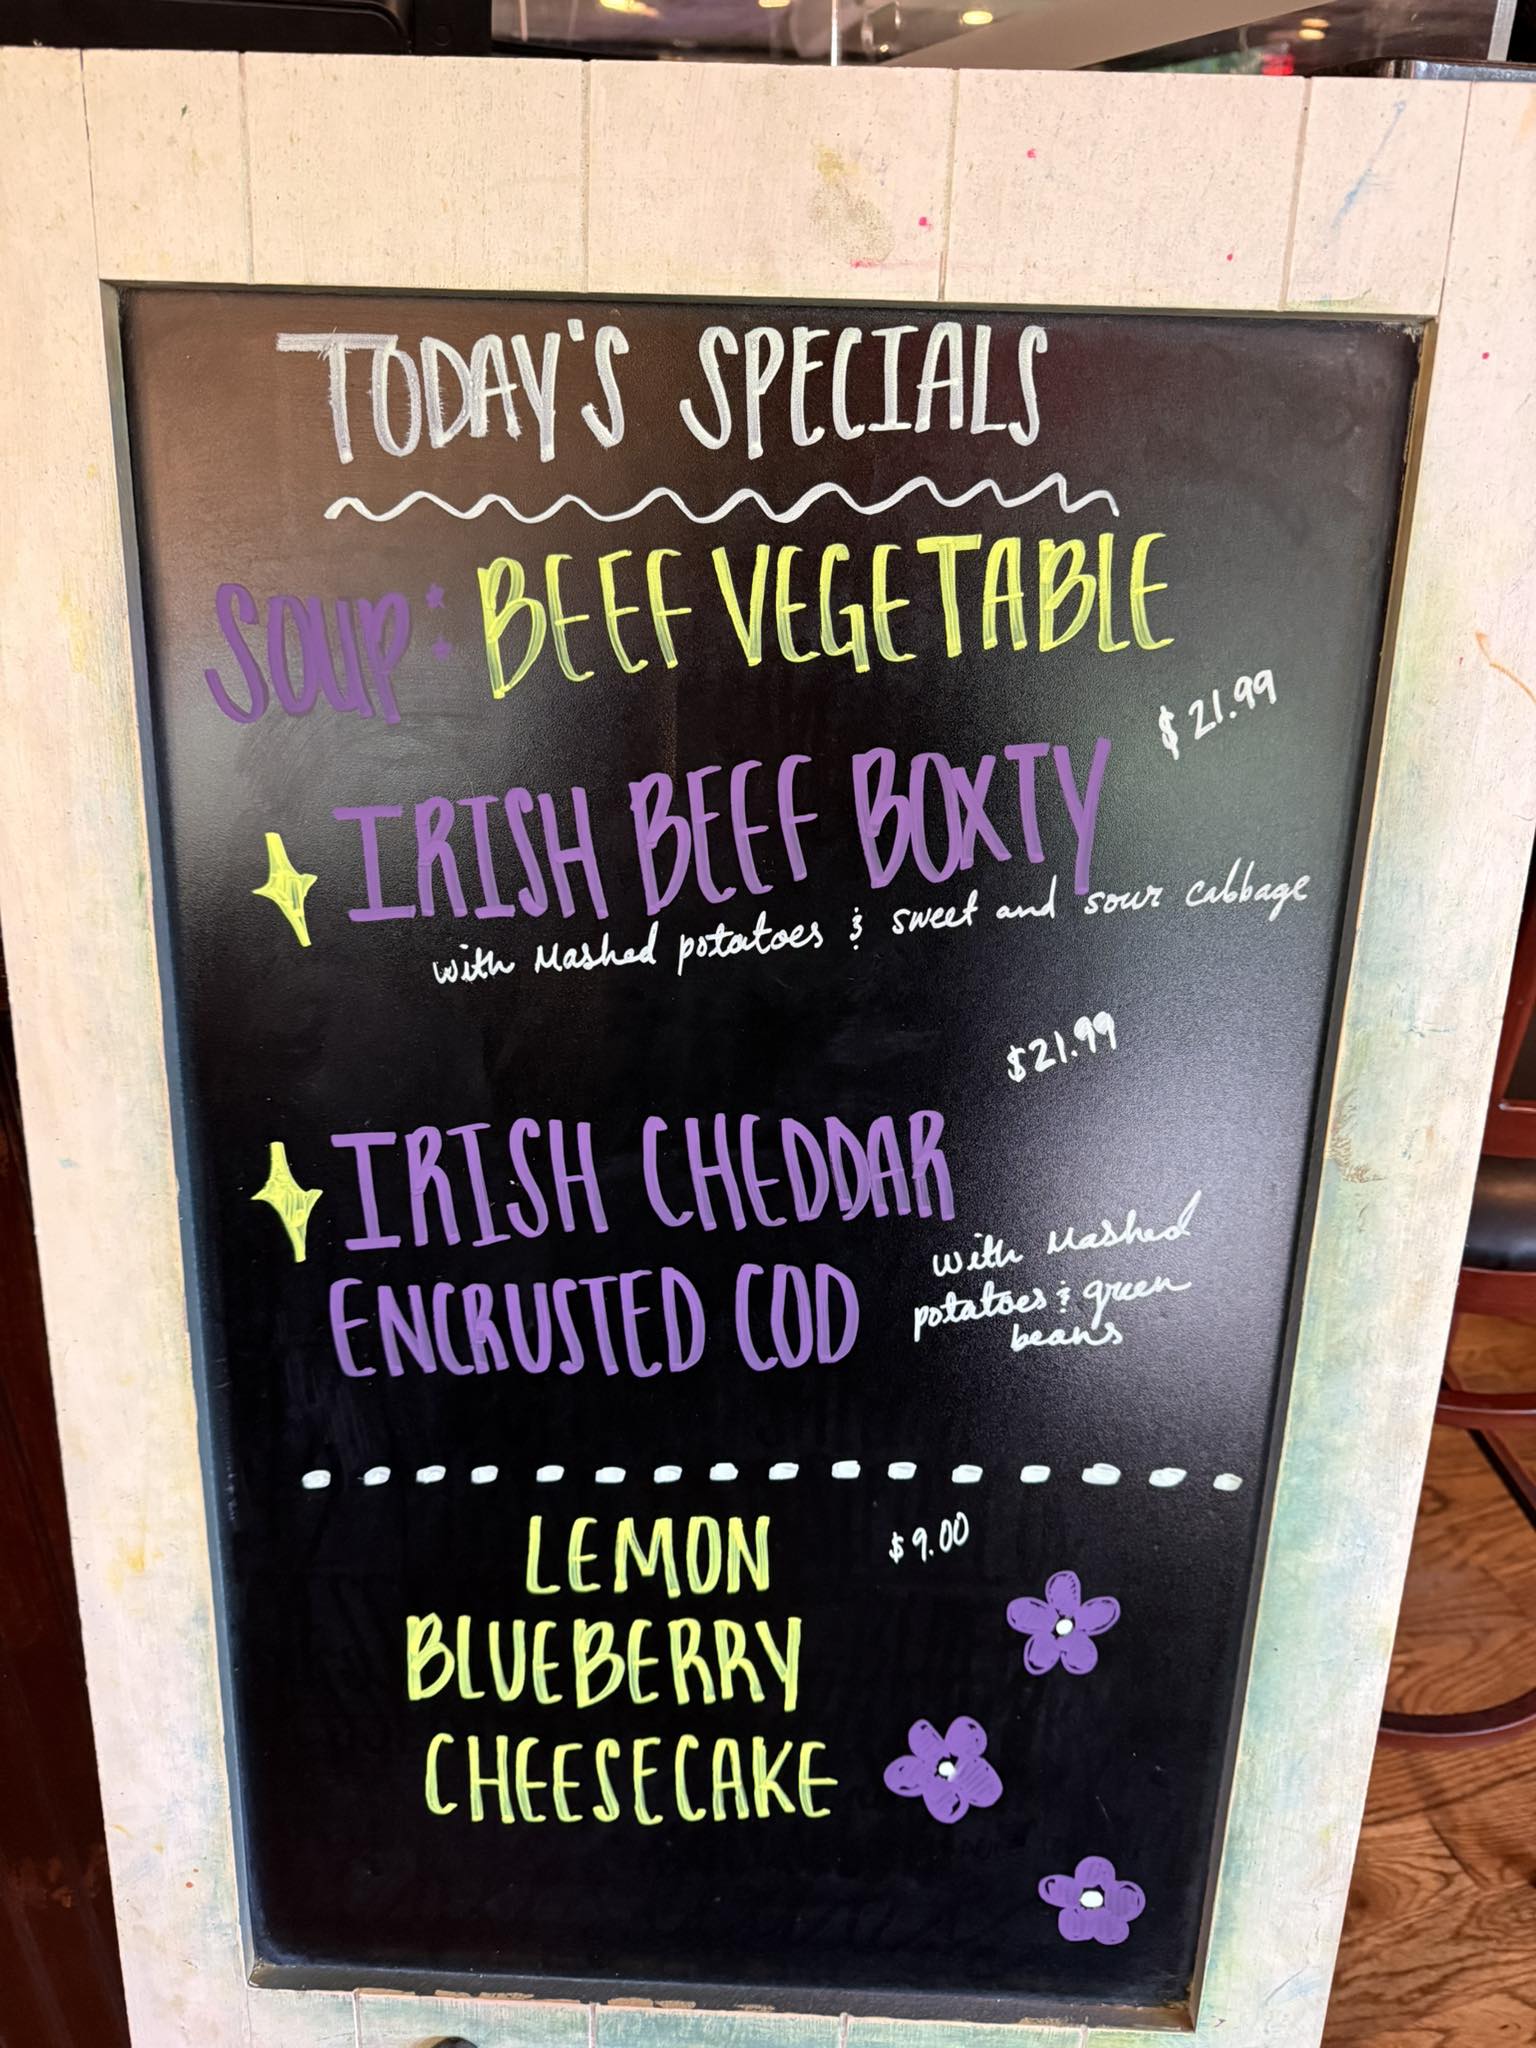 TODAY'S SPECIALS
SOUP: BEEF VEGETABLE
$21.99
IRISH BEEF BOXTY
with Mashed potatoes & sweet and sour cabbage
$21.99
IRISH CHEDDAR
ENCRUSTED COD
with Mashed
potatoes & green
beans
LEMON
$9.00
BLUEBERRY
CHEESECAKE